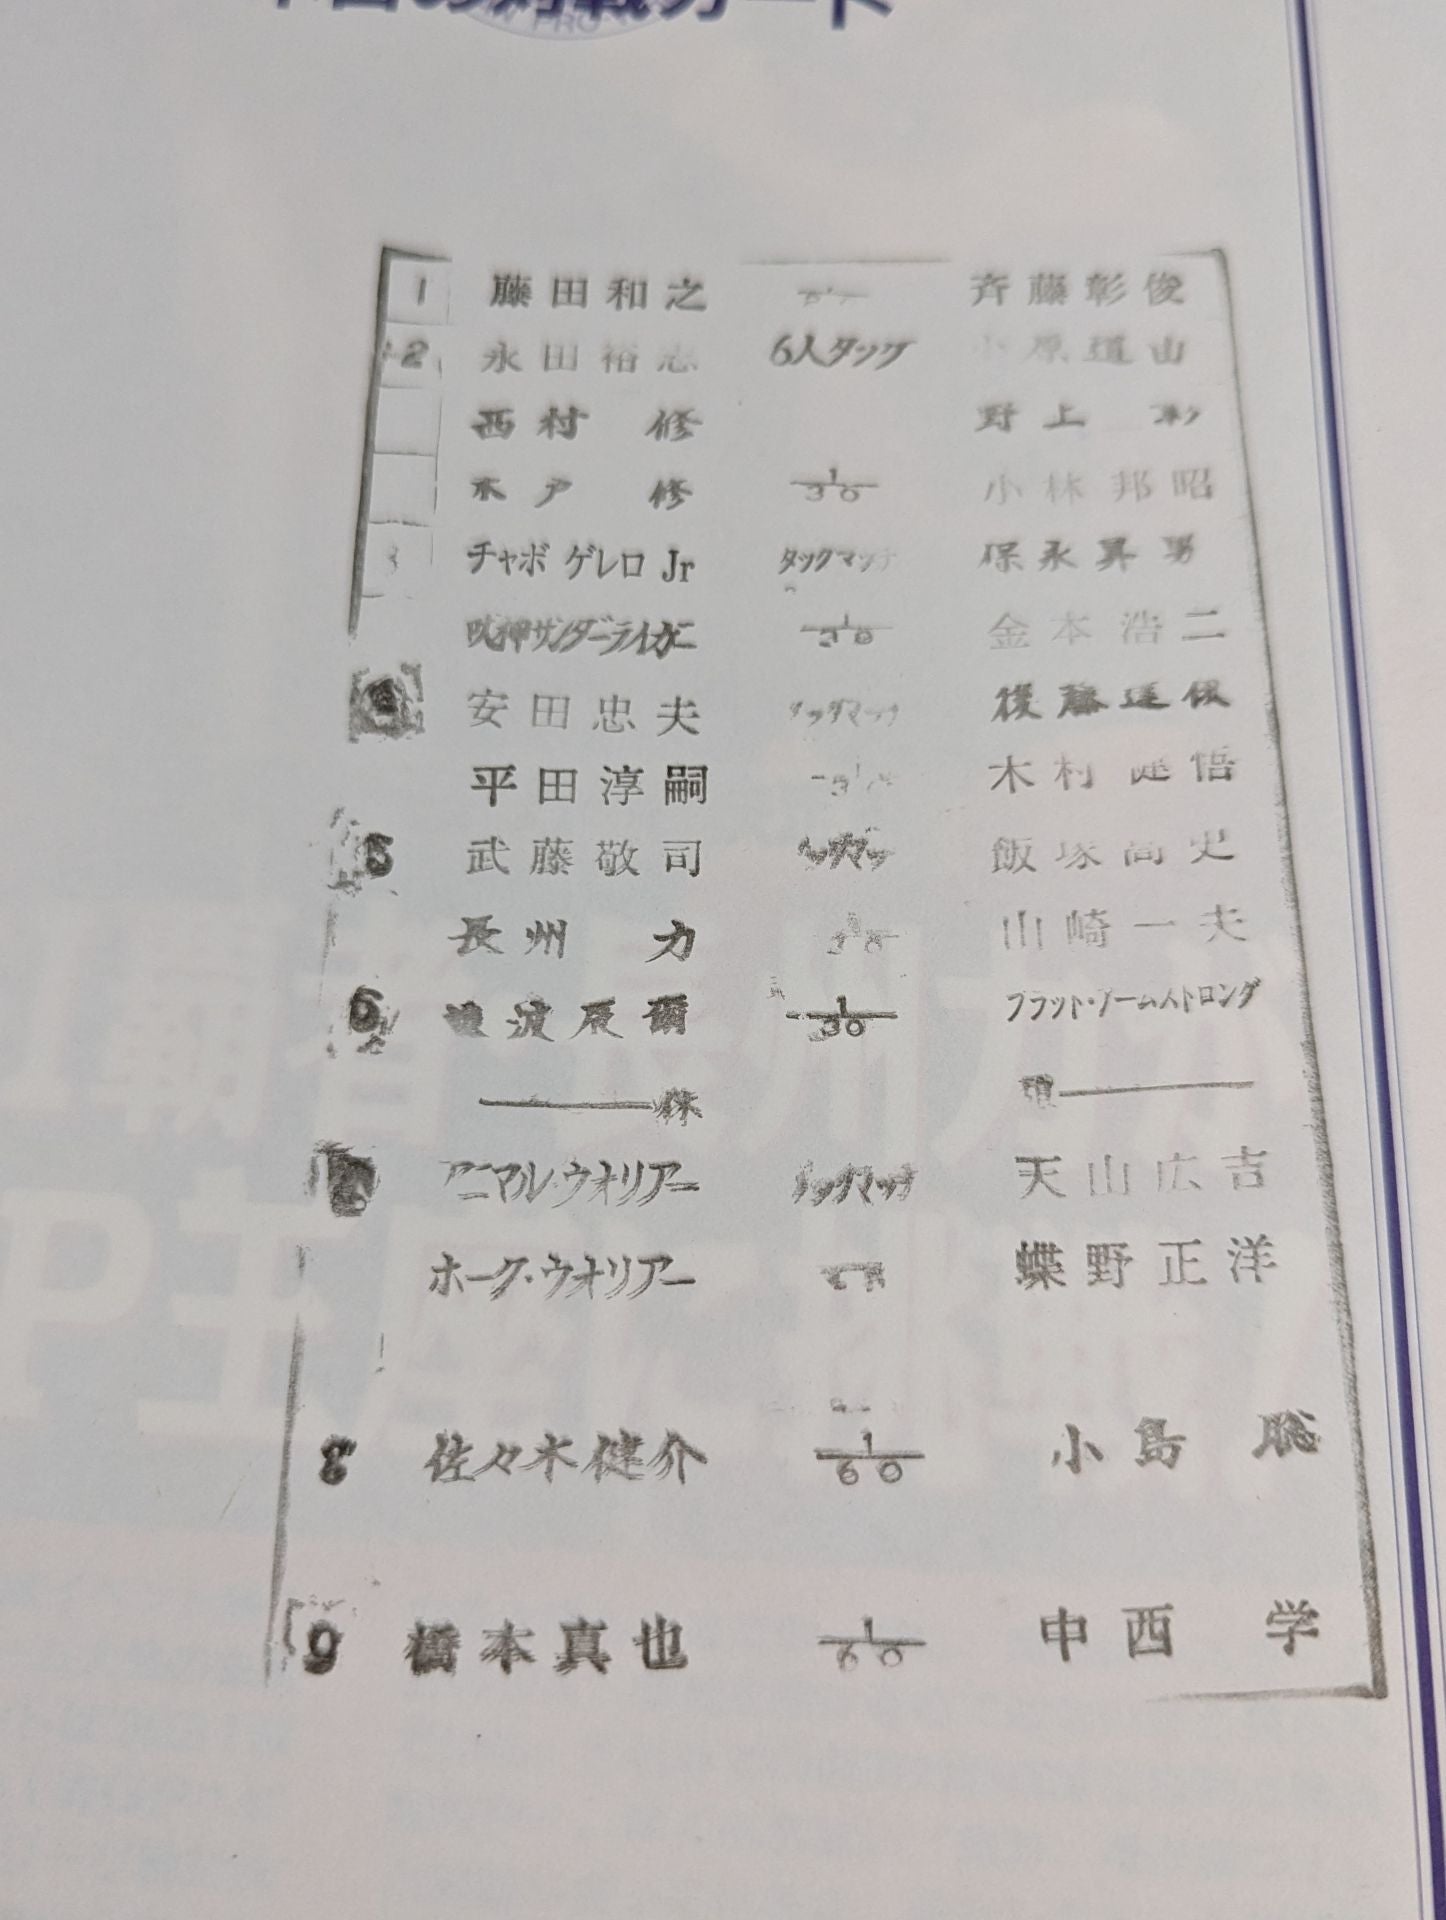 本日の対戦カード
1 藤田和之 斉藤彰俊
2 永田裕志 6人タッグ 小原道由
西村 修 野上 彰
木戸 修 1/30 小林邦昭
3 チャボ ゲレロ Jr タッグマッチ 保永昇男
獣神サンダーライガー 1/30 金本浩二
安田忠夫 タッグマッチ 後藤達俊
平田淳嗣 木村健悟
5 武藤敬司 タッグマッチ 飯塚高史
長州 力 山崎一夫
6 藤波辰爾 1/30 ブラット・アームストロング
休 憩
7 アニマル・ウオリアー タッグマッチ 天山広吉
ホーク・ウオリアー 蝶野正洋
8 佐々木健介 1/60 小島 聡
9 橋本真也 1/60 中西 学